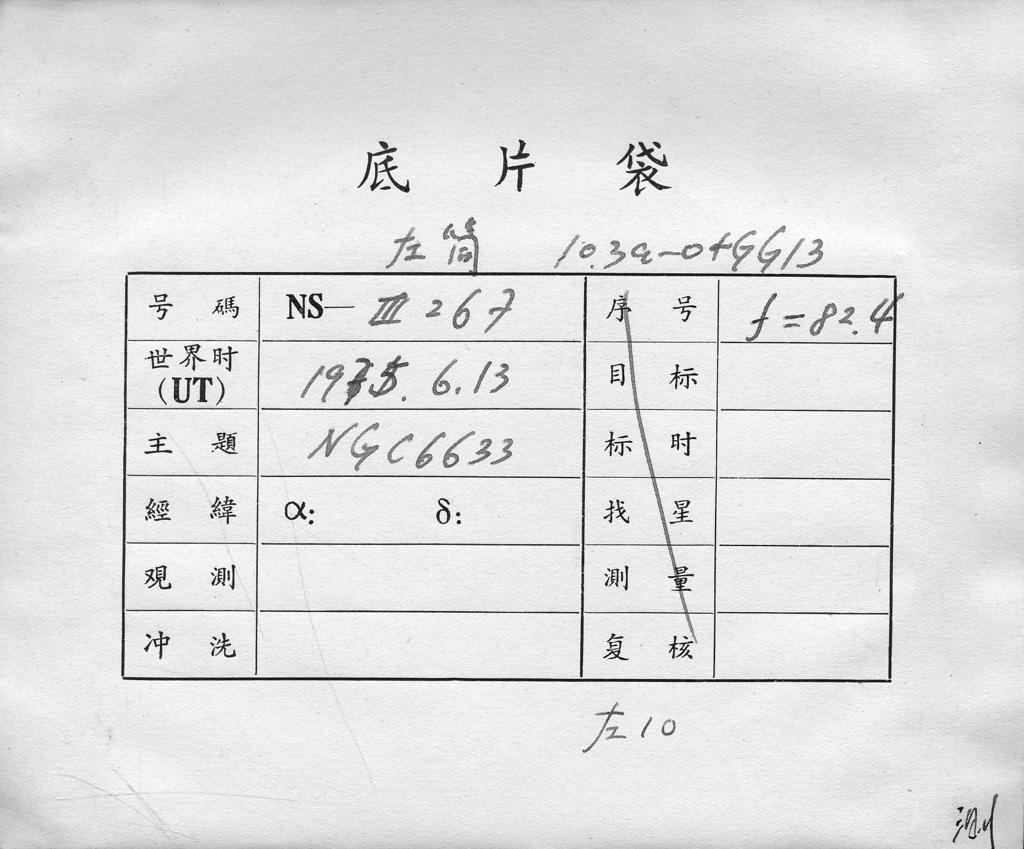 底片袋
左筒 10.3a-0+GG13
号碼 NS—III267 序号 f=82.4
世界时(UT) 1975.6.13 目标
主題 NGC6633 标时
經緯 α: δ: 找星
观測 測量
冲洗 复核
左10
測